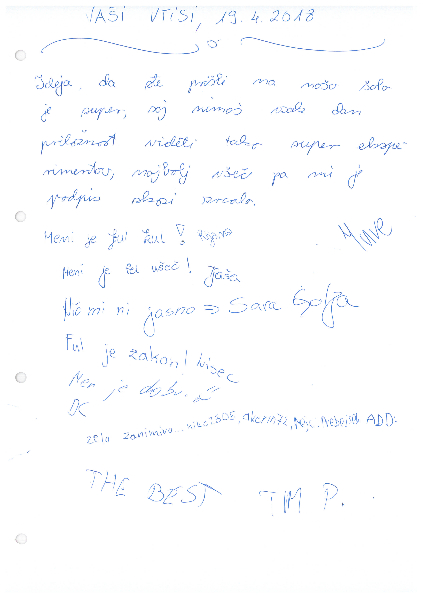 VAŠI VTISI, 19.4.2018
Ideja, da ste prišli na našo šolo
je super, saj nimaš vsak dan
priložnost videti tako super ekspe
rimentov, najbolj všeč pa mi je
podpis skozi zrcalo.
Meni je ful ful!
Meni je bil všeč! Tjaša
Nič mi ni jasno => Sara Golja
Ful je zakon!
Men je
OK
zelo zanimivo
THE BEST TIM P.